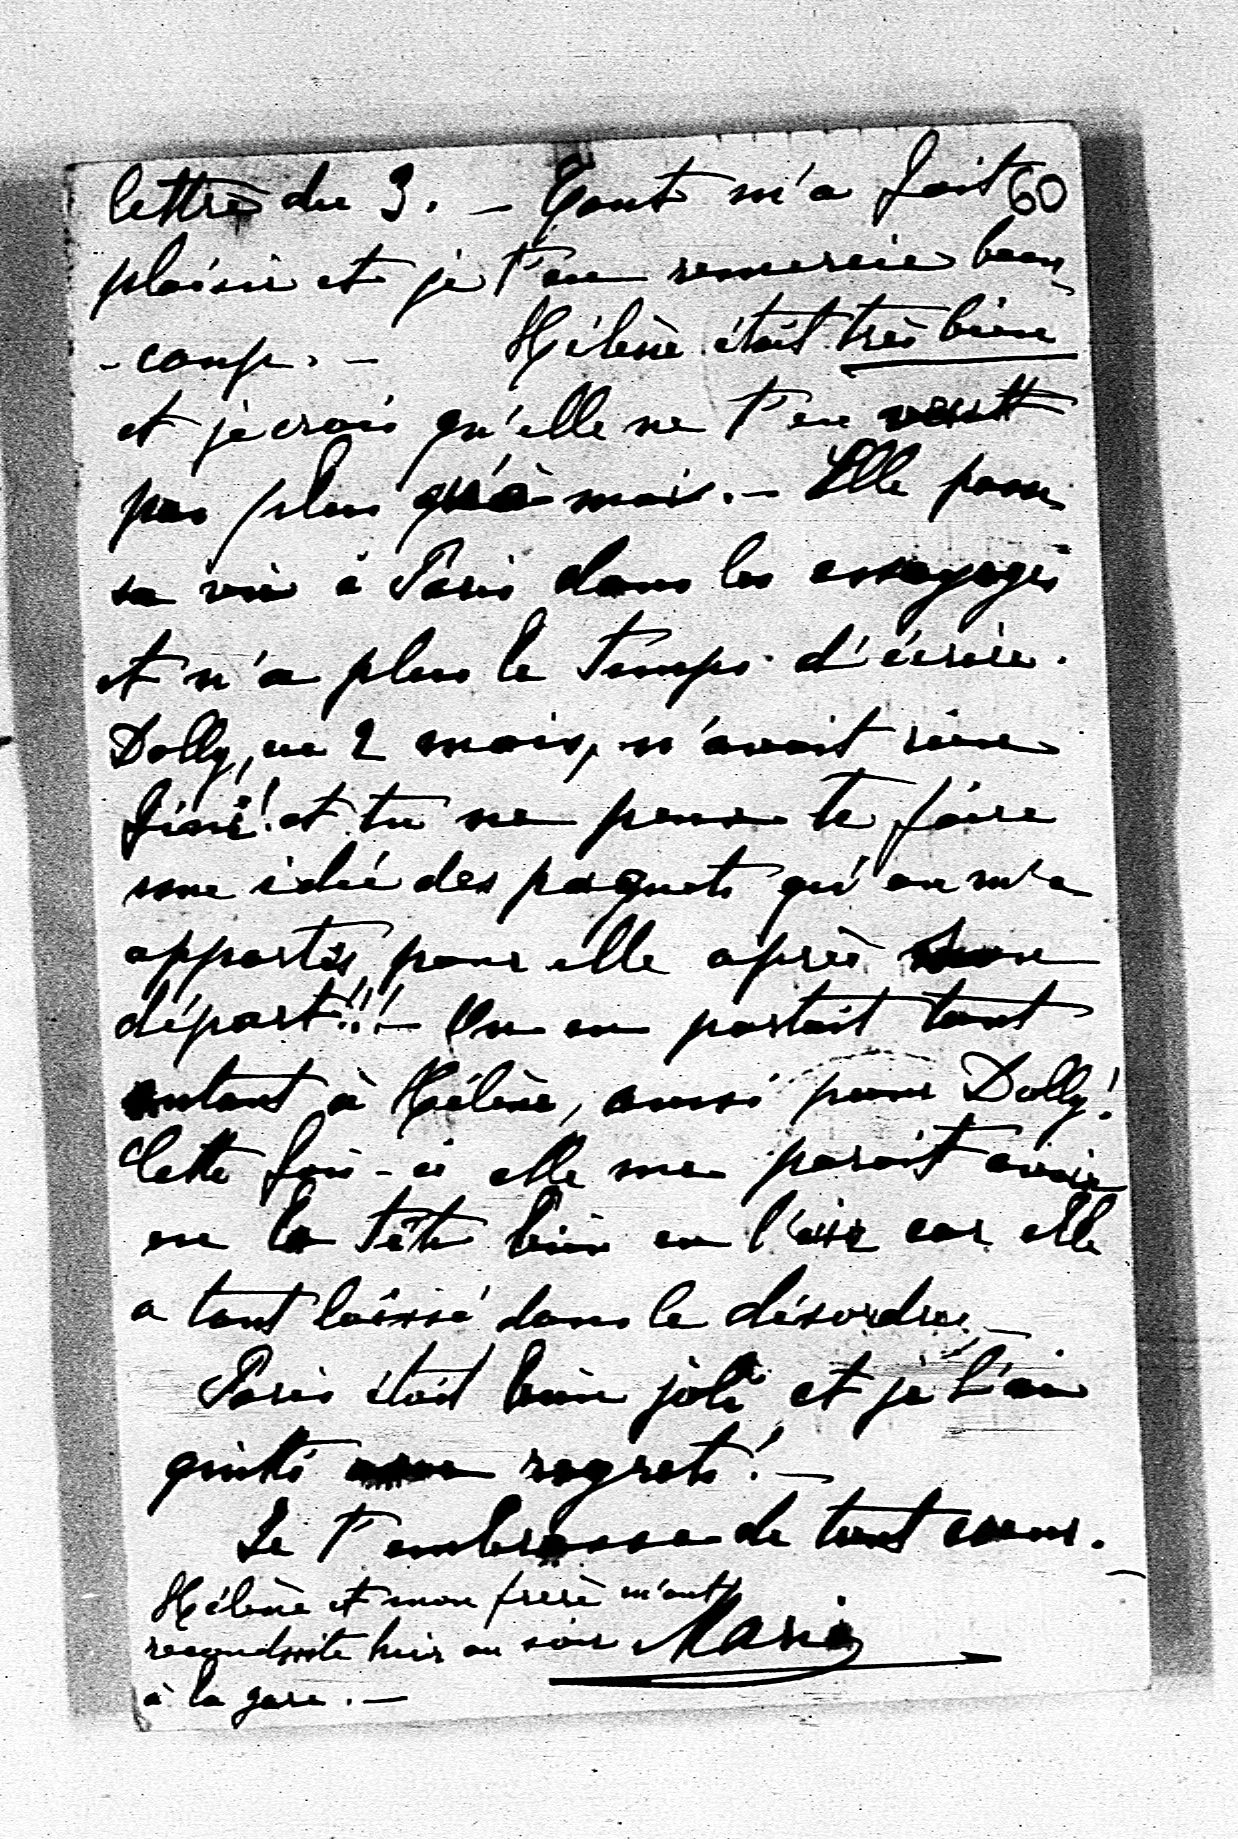 60
lettre du 3. — Tout m'a fait
plaisir et je t'en remercie beau
-coup. — Hélène était très bien
et je crois qu'elle ne t'en veut
pas plus qu'à moi. — Elle passe
sa vie à Paris dans les essayages
et n'a plus le temps d'écrire.
Dolly, en 2 mois, n'avait rien
fini! et tu ne peux te faire
une idée des paquets qu'on m'a
apportés pour elle après son
départ!!! — On en portait tout
autant à Hélène, aussi pour Dolly!
Cette fois-ci elle me parait avoir
eu la tête bien en l'air car elle
a tout laissé dans le désordre. —
Paris était bien joli et je l'ai
quitté avec regrets! —
Je t'embrasse de tout cœur. —
Hélène et mon frère m'ont
reconduite hier au soir
à la gare. —
Marie